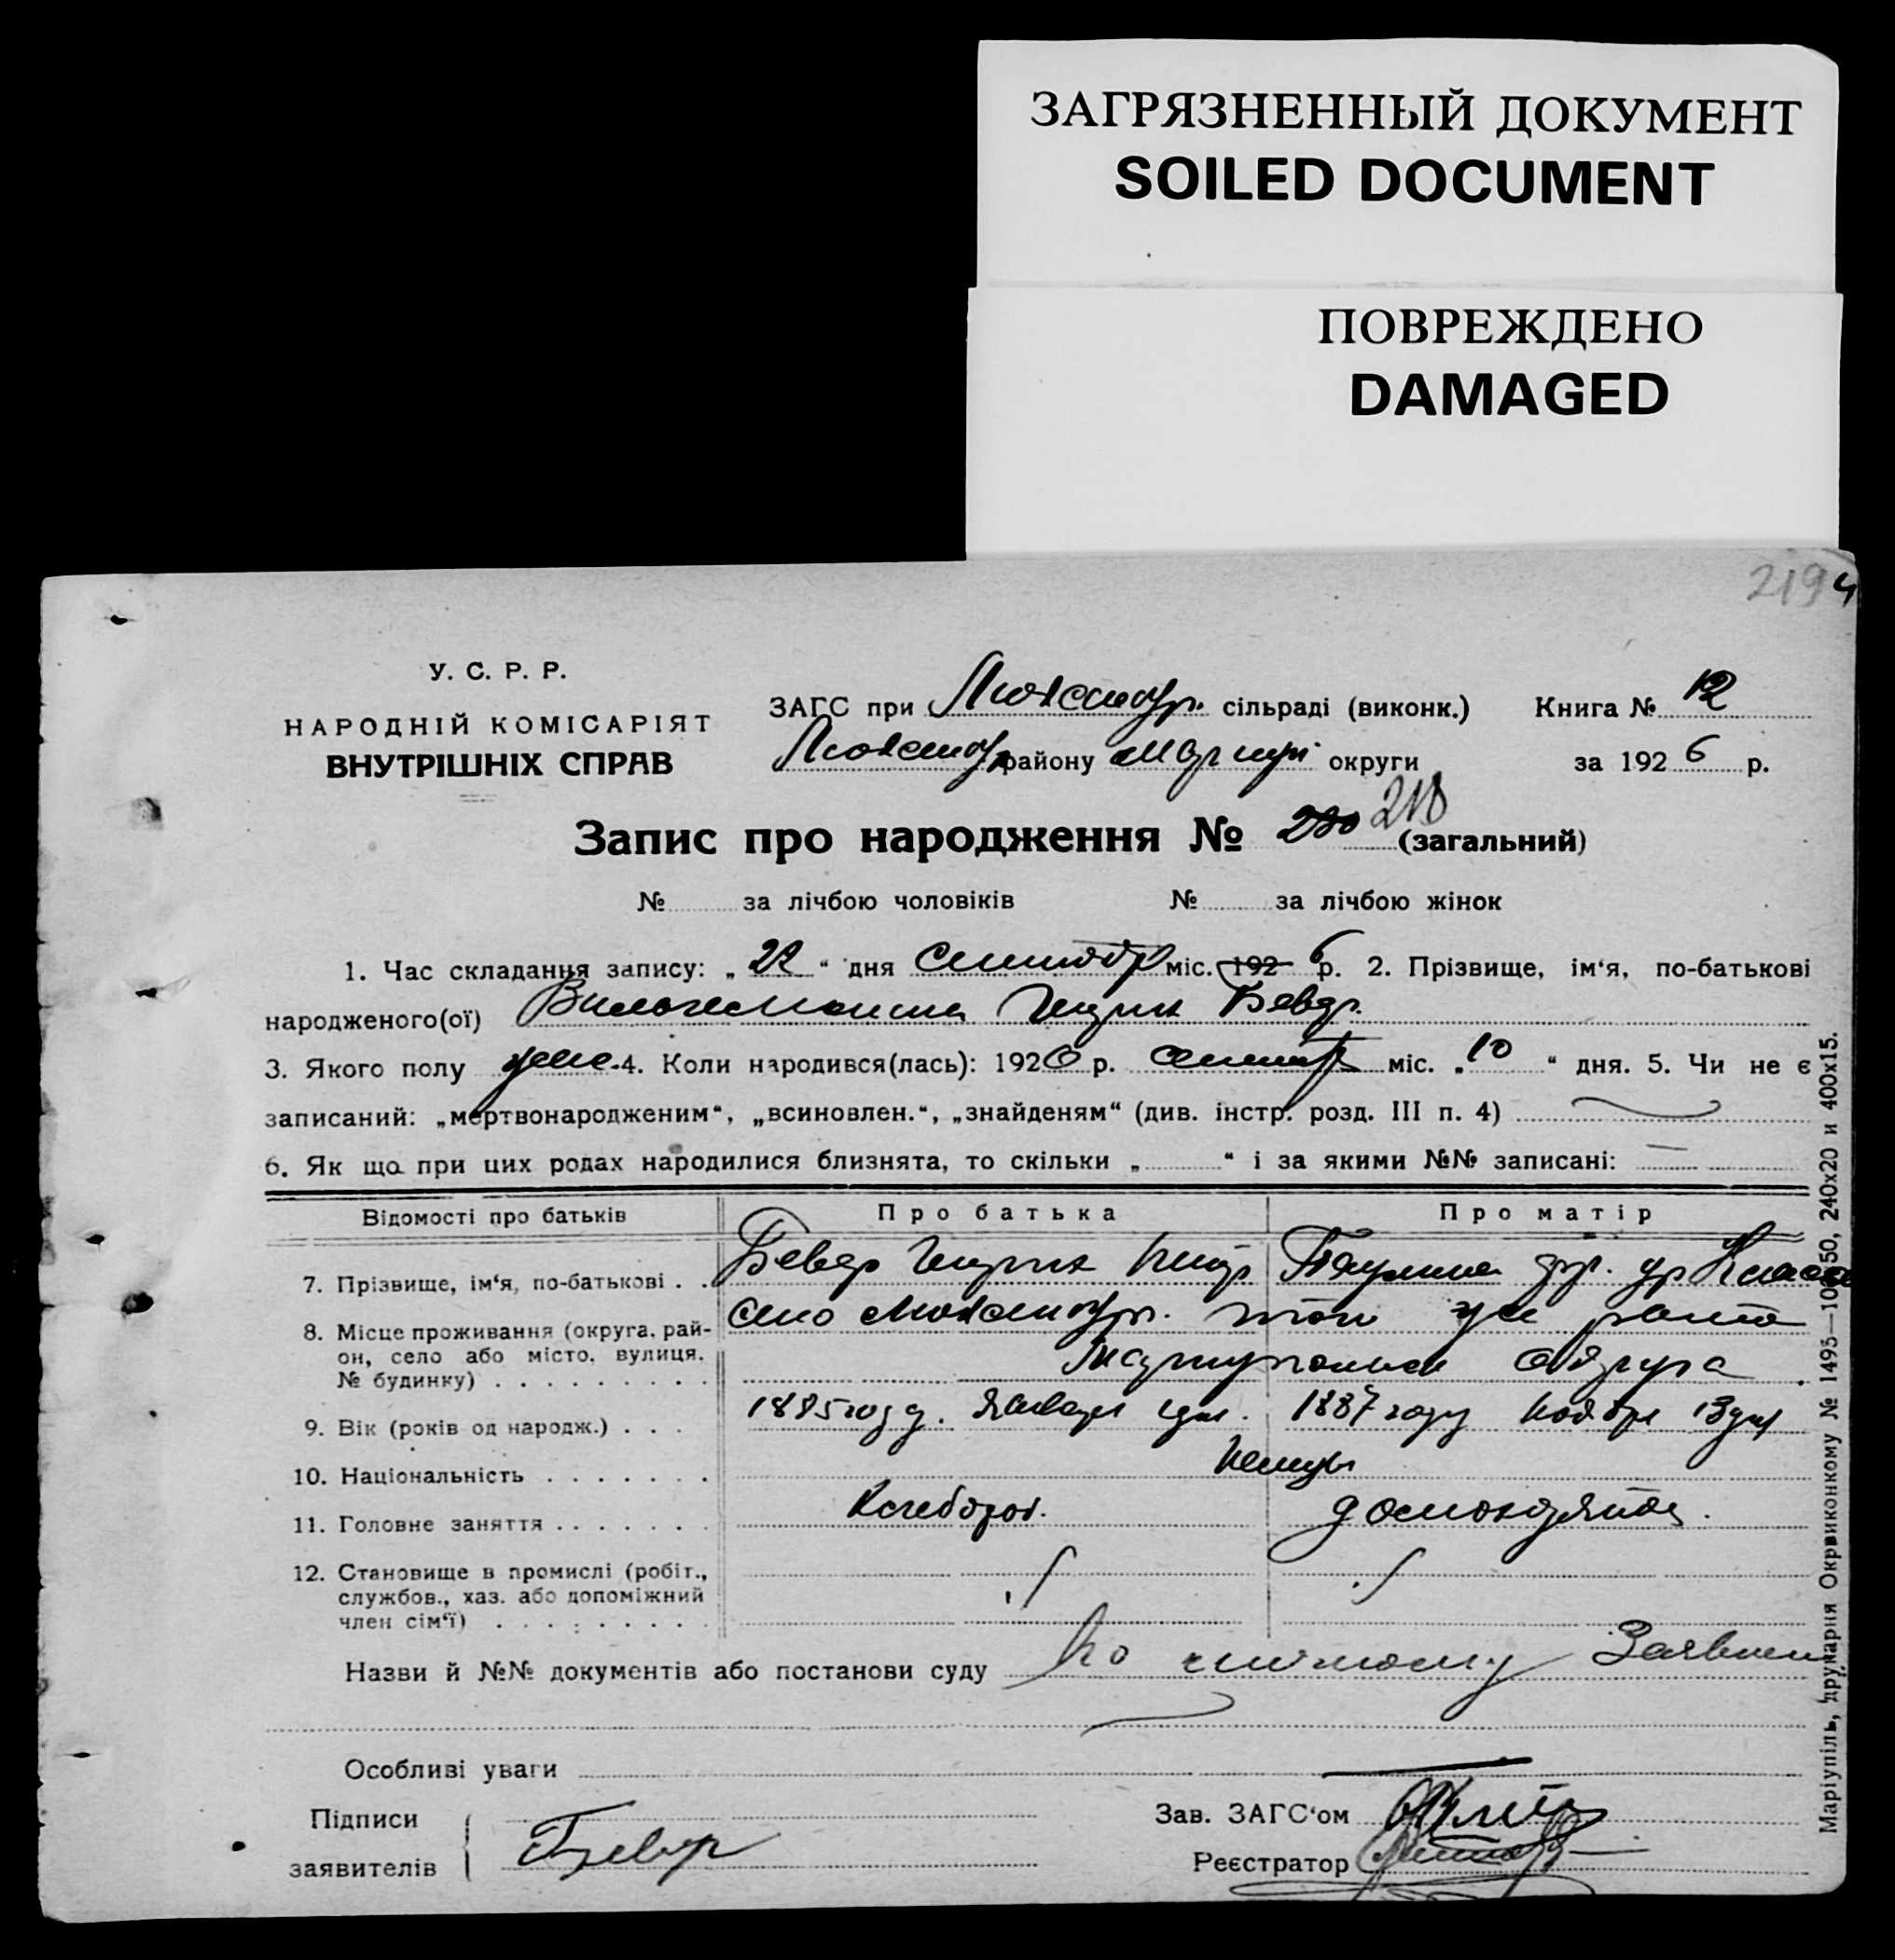 ЗАГРЯЗНЕННЫЙ ДОКУМЕНТ
SOILED DOCUMENT
ПОВРЕЖДЕНО
DAMAGED
219 4
У. С. Р. Р.
НАРОДНІЙ КОМІСАРІЯТ
ВНУТРІШНІХ СПРАВ
ЗАГС при сільраді (виконк.) Книга № 12
району округи за 1926 р.
Запис про народження № 230 218 (загальний)
№ за лічбою чоловіків № за лічбою жінок
1. Час складання запису: „22“ дня міс. 1926 р. 2. Прізвище, ім‘я, по-батькові
народженого(ої) Бевер
3. Якого полу жен. 4. Коли народився(лась): 1926 р. міс. „10“ дня. 5. Чи не є
записаний: „мертвонародженим“, „всиновлен.“, „знайденям“ (див. інстр. розд. III п. 4)
6. Як що при цих родах народилися близнята, то скільки „ “ і за якими №№ записані:
Відомості про батьків Про батька Про матір
7. Прізвище, ім‘я, по-батькові . . Бевер
8. Місце проживання (округа, рай-
он, село або місто, вулиця,
№ будинку) село того же района
округа
9. Вік (років од народж.) . . . 1885 году. Января 1887 году Ноября 13 дня
10. Національність немцы
11. Головне заняття Хлебороб. домохозяйка.
12. Становище в промислі (робіт.,
службов., хаз. або допоміжний
член сім‘ї)
Назви й №№ документів або постанови суду По Заявлен
Особливі уваги
Підписи
заявителів Бевер
Зав. ЗАГС‘ом
Реєстратор
Маріупіль, друкарня Окрвиконкому № 1495—10050, 240x20 и 400x15.